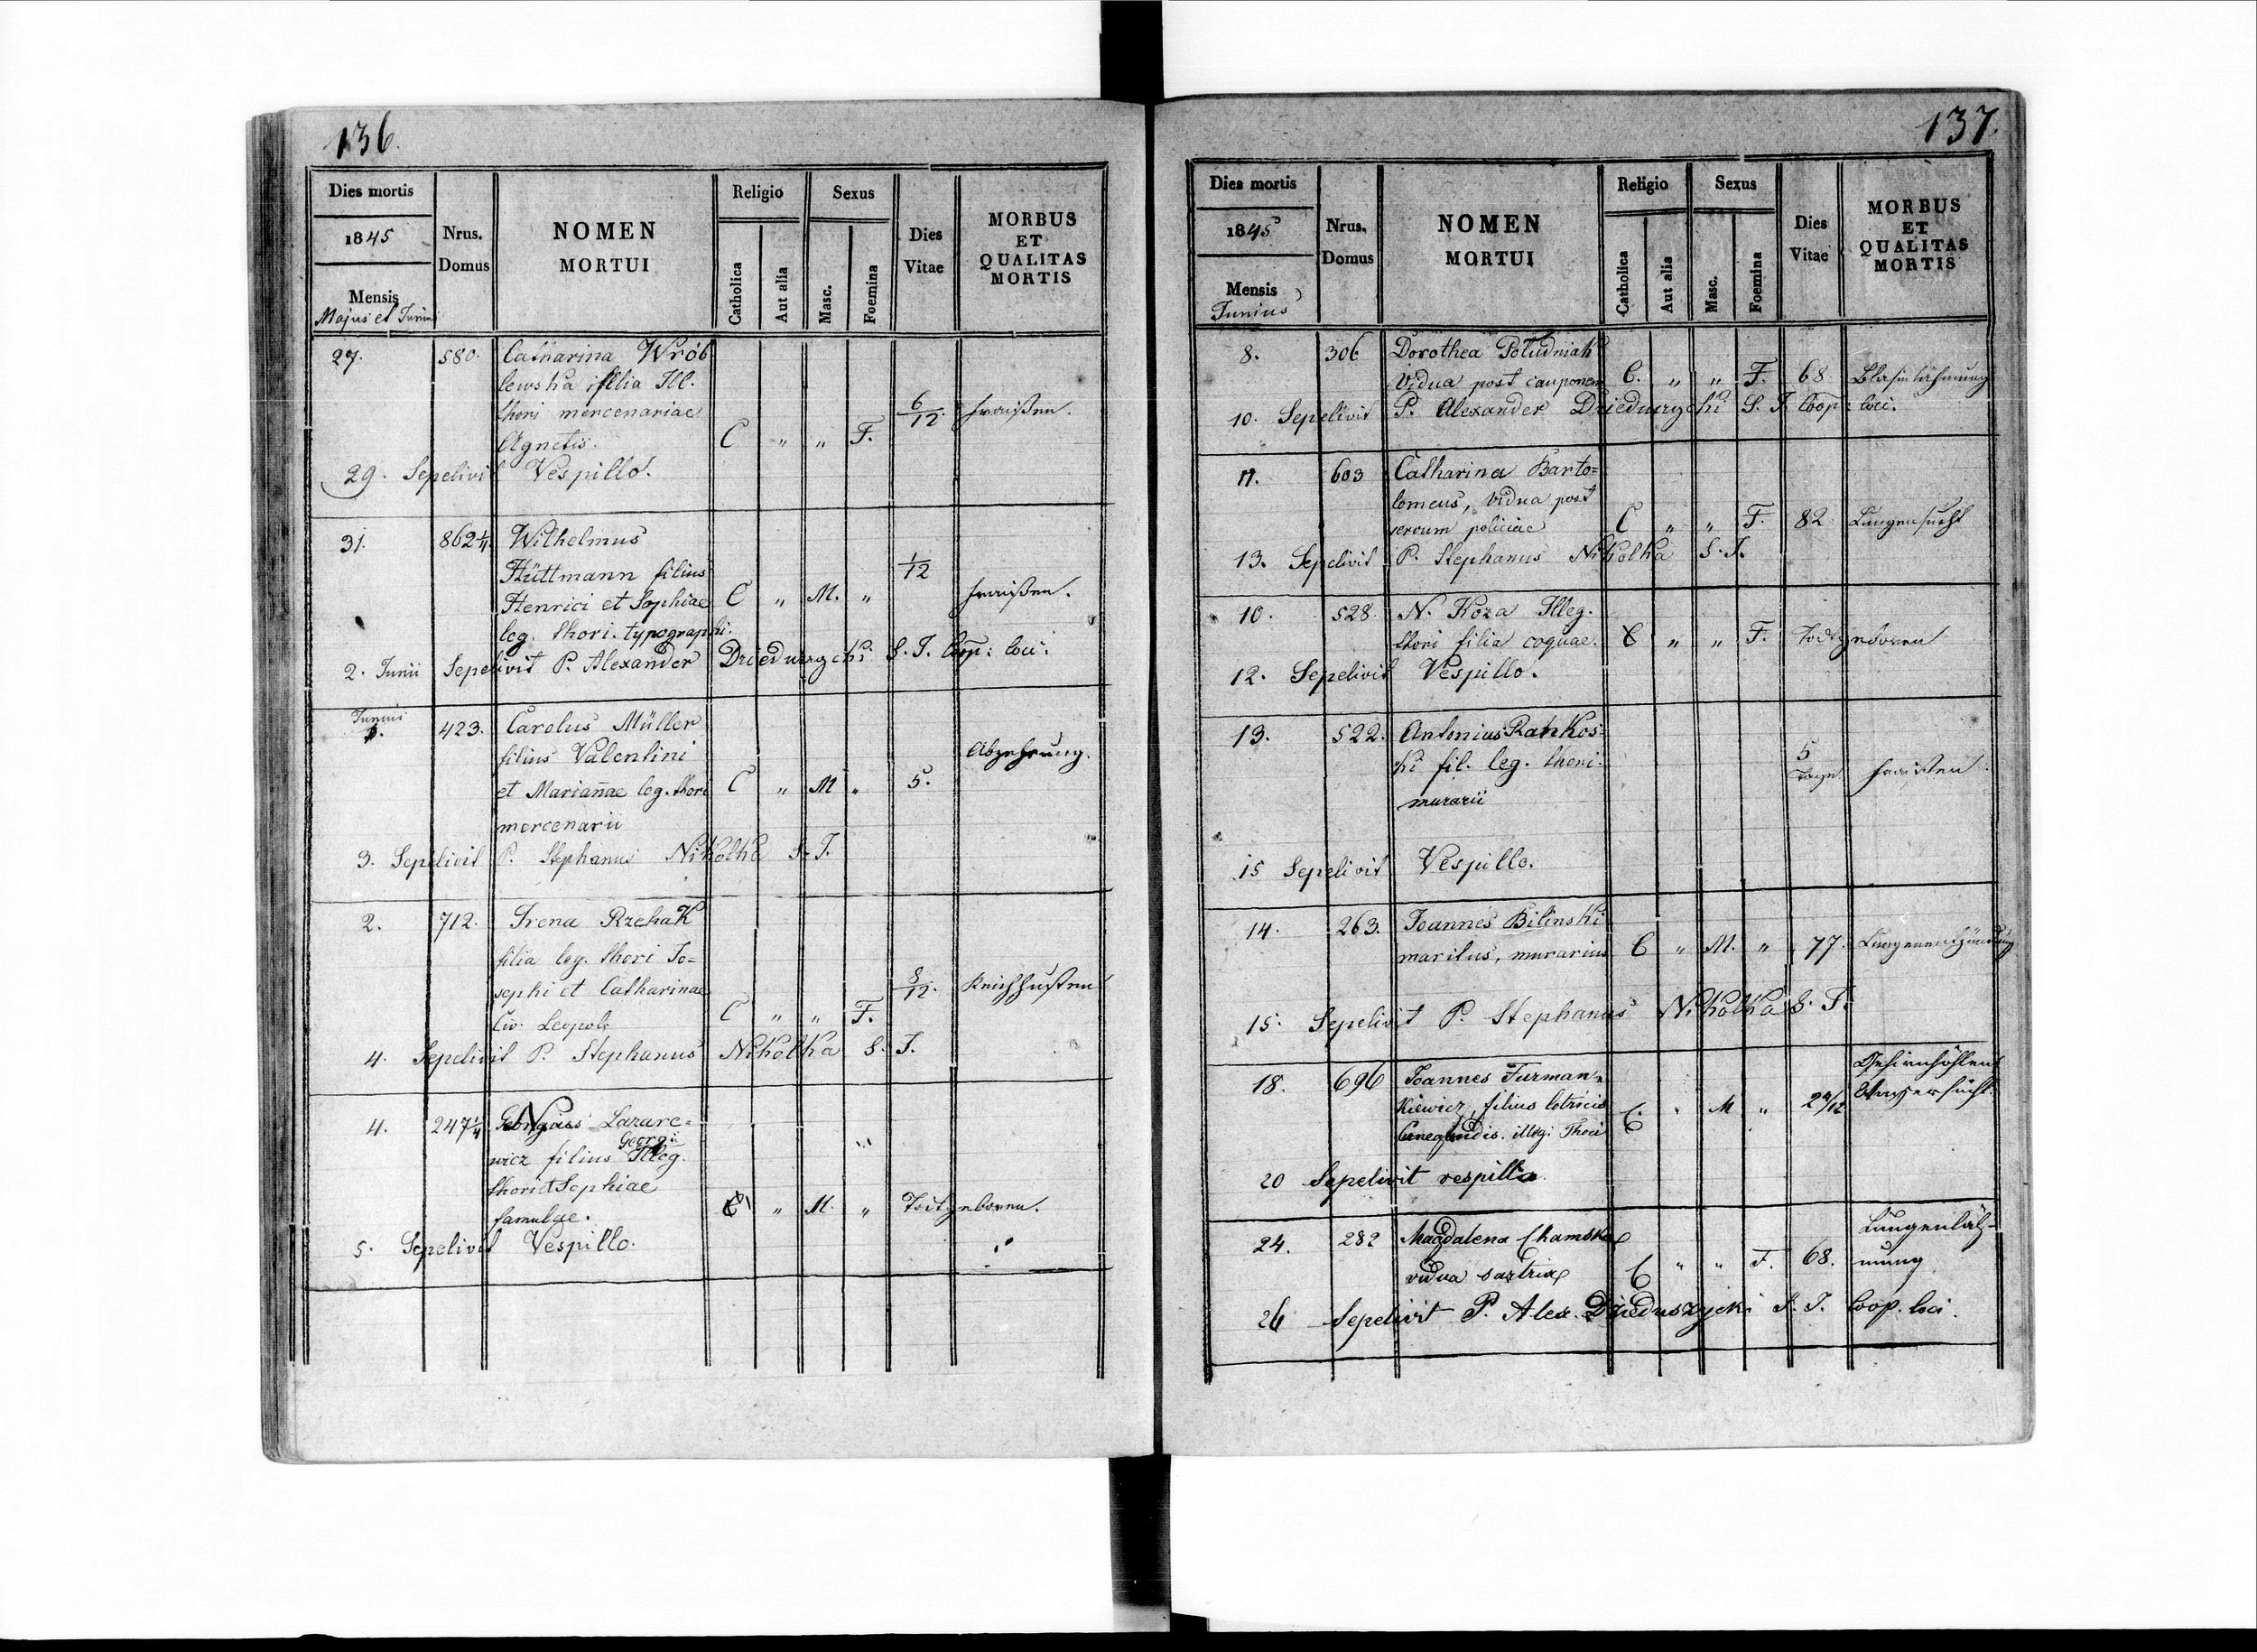 136.
Dies mortis
1845
Mensis
Majus et Junius
Nrus.
Domus
NOMEN
MORTUI
Religio
Catholica
Aut alia
Sexus
Masc.
Foemina
Dies
Vitae
MORBUS
ET
QUALITAS
MORTIS
27. 580. Catharina Wrób
lewska filia Ill.
thori mercenariae 6/12 Fraißen.
Agnetis. C " " F.
29. Sepelivit Vespillo.
31. 862 Wilhelmus
Hüttmann filius 1/12
Henrici et Sophiae C " M. " Fraißen.
leg. thori. typographi.
2. Junii Sepelivit P. Alexander Dzieduszycki S. J. Coop: loci.
Junius
1. 423. Carolus Müller
filius Valentini Abzehrung.
et Mariañae leg. thori C " M " 5.
mercenarii
3. Sepelivit P. Stephanus Nikolka S. J.
2. 712. Irena Rzehak
filia leg. thori Jo=
sephi et Catharinae 8/12. Keichhusten
Civ. Leopoli C " " F.
4. Sepelivit P. Stephanus Nikolka S. J.
4. 247 Lazare=
Georgii
wicz filius Illeg.
thori et Sophiae
famulae. C " M. " Todtgeboren.
5. Sepelivit Vespillo.
137.
Dies mortis
1845
Mensis
Junius
Nrus.
Domus
NOMEN
MORTUI
Religio
Catholica
Aut alia
Sexus
Masc.
Foemina
Dies
Vitae
MORBUS
ET
QUALITAS
MORTIS
8. 306 Dorothea Południak
Vidua post cauponem C. " " F. 68.
10. Sepelivit P. Alexander Dzieduszycki S. J. Coop: loci.
11. 603 Catharina Barto=
lomeus, vidua post
servum policiae C " " F. 82. Lungensucht
13. Sepelivit P. Stephanus Nikolka S. J.
10. 528. N. Koza Illeg.
thori filia coquae. C " " F. Todtgeboren
12. Sepelivit Vespillo.
13. 522. Antonius Rankos=
ki fil. leg. thori. 5
murarii Tage. Fraißen.
15 Sepelivit Vespillo.
14. 263. Joannes Bilinski
maritus, murarius C " M. " 77. Lungenentzündung
15. Sepelivit P. Stephanus Nikolka S. J.
18. 696 Joannes Furman= Gehirnhöhlen
kiewicz, filius lotricis C. " M " Wassersucht.
Cunegundis. illegi Thori
20 Sepelivit vespillo
24. 282 Magdalena Chamska Lungenläh-
vidua sartrix C " " F. 68. mung
26 Sepelivit P. Alex. Dzieduszycki S. J. Coop. loci.